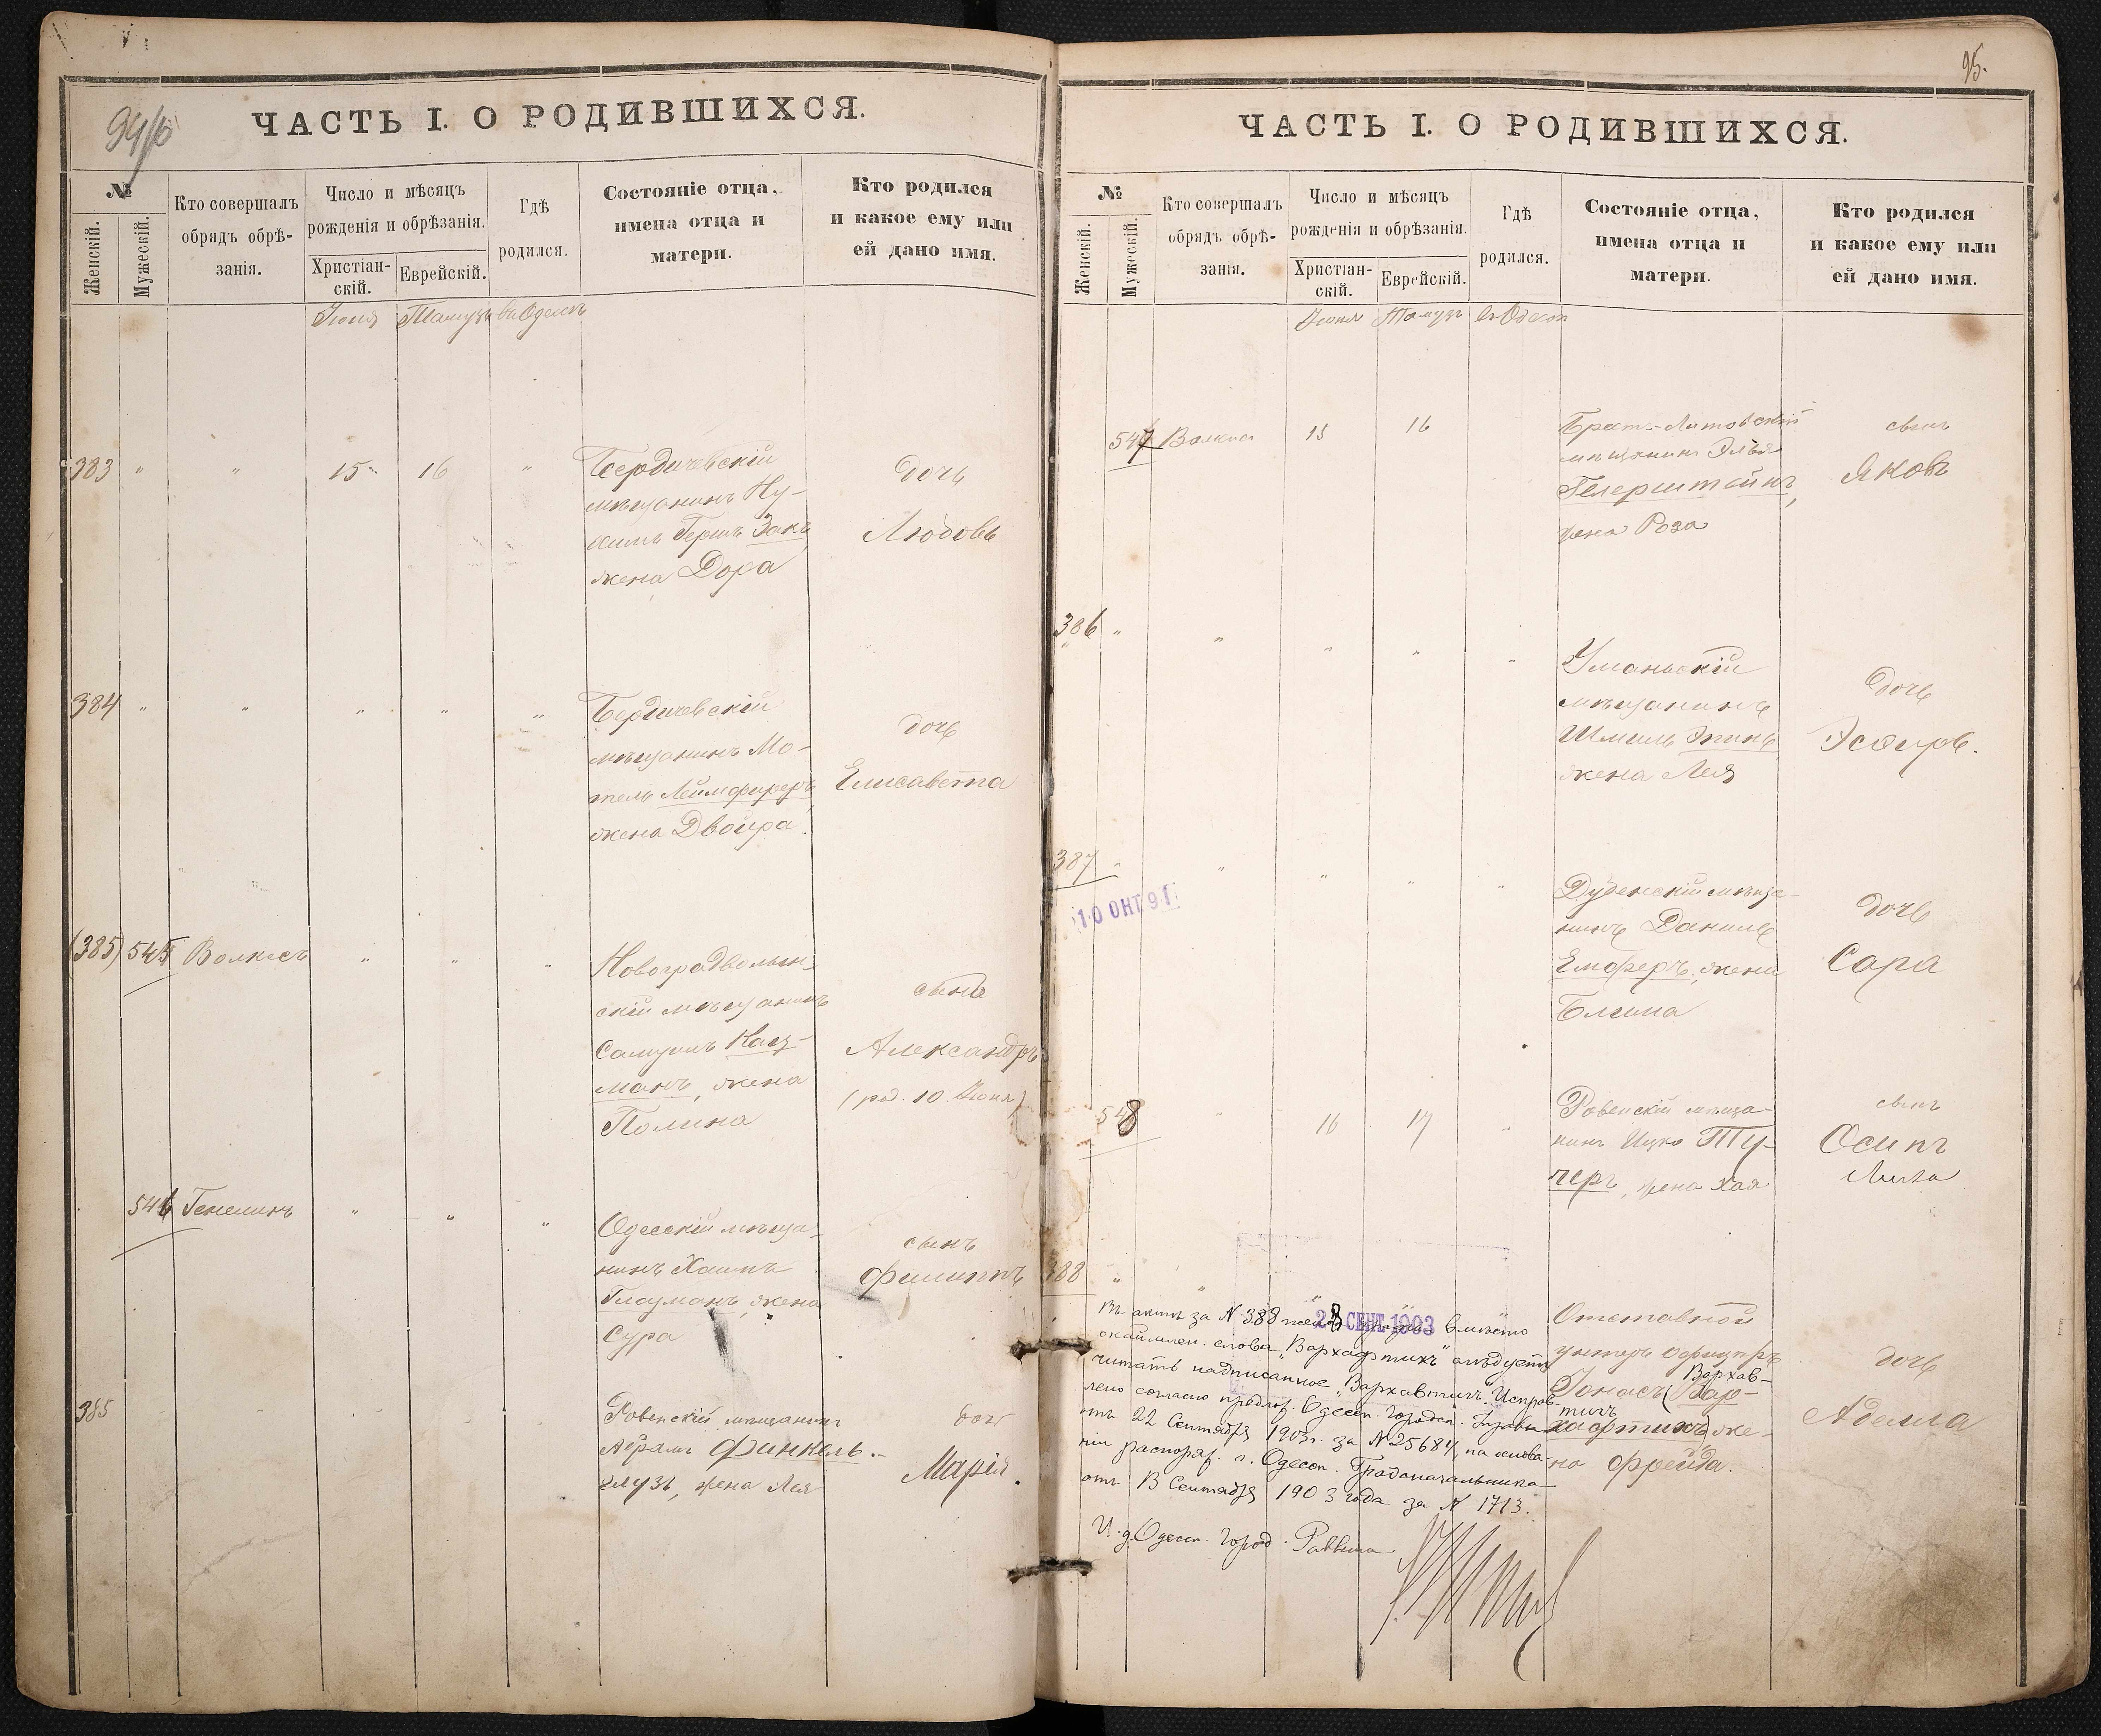 94/б
ЧАСТЬ I. О РОДИВШИХСЯ.
№
Женскій.
Мужескій.
Кто совершалъ
обрядъ обрѣ-
занія.
Число и мѣсяцъ
рожденія и обрѣзанія.
Христіан-
скій.
Еврейскій.
Гдѣ
родился.
Состояніе отца,
имена отца и
матери.
Кто родился
и какое ему или
ей дано имя.
Іюня Тамузъ въ Одессѣ
383 " " 15 16 "
Бердичевскій
мѣщанинъ Ну-
химъ Гершъ Закъ
жена Дора
дочь
Любовь
384 " " " " "
Бердичевскій
мѣщанинъ Мо-
тель Леймфиреръ
жена Двойра
дочь
Елисавета
(385) 545 Волкисъ " " "
Новоградволын-
скій мѣщанинъ
Самуилъ Кац-
манъ, жена
Полина
сынъ
Александръ
(род. 10 Іюня)
546 Генелинъ " " "
Одесскій мѣща-
нинъ Хаимъ
Глазманъ, жена
Сура
сынъ
Филиппъ
385 " " " " "
Ровенскій мѣщанинъ
Абрамъ Финкель-
блузъ, жена Лея
дочь
Марія.
95.
ЧАСТЬ I. О РОДИВШИХСЯ.
№
Женскій.
Мужескій.
Кто совершалъ
обрядъ обрѣ-
занія.
Число и мѣсяцъ
рожденія и обрѣзанія.
Христіан-
скій.
Еврейскій.
Гдѣ
родился.
Состояніе отца,
имена отца и
матери.
Кто родился
и какое ему или
ей дано имя.
Іюня Тамузъ въ Одессѣ
547 Волкисъ 15 16
Брестъ-Литовскій
мѣщанинъ Элья
Гелерштейнъ,
жена Роза
сынъ
Яковъ
386 " " " " "
Уманьскій
мѣщанинъ
Шмиль Эпинъ
жена Лея
дочь
Эсѳирь.
387 " " " " "
10 ОКТ 91
Дубенскій мѣща-
нинъ Данилъ
Емоферъ, жена
Блима
дочь
Сара
548 " 16 17 "
Ровенскій мѣща-
нинъ Ицко Ту-
черъ, жена Хая
сынъ
Осипъ
Лейба
388 " "
28 СЕНТ. 1903
Отставной
унтеръ офицеръ
Вархав-
Іонасъ (Вар-
тихъ
хафтихъ) же-
на Фрейда.
дочь
Аделла
Въ актѣ за № 388 вмѣсто
окаймлен. слова "Вархафтихъ" слѣдуетъ
читать надписанное "Вархавтихъ". Исправ-
лено согласно предлож. Одесск. Городск. Управы
отъ 22 Сентября 1903 г. за № 25684, на основа-
ніи распоряж. г. Одесск. Градоначальника
отъ 13 Сентября 1903 года за № 1713.
И. д. Одесск. Город. Раввина